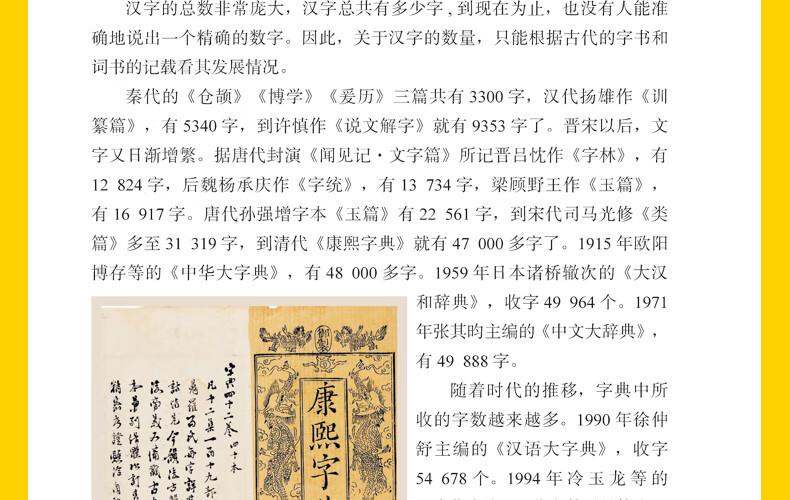 汉字的总数非常庞大，汉字总共有多少字，到现在为止，也没有人能准
确地说出一个精确的数字。因此，关于汉字的数量，只能根据古代的字书和
词书的记载看其发展情况。
秦代的《仓颉》《博学》《爰历》三篇共有 3300 字，汉代扬雄作《训
纂篇》，有 5340 字，到许慎作《说文解字》就有 9353 字了。晋宋以后，文
字又日渐增繁。据唐代封演《闻见记·文字篇》所记晋吕忱作《字林》，有
12 824 字，后魏杨承庆作《字统》，有 13 734 字，梁顾野王作《玉篇》，
有 16 917 字。唐代孙强增字本《玉篇》有 22 561 字，到宋代司马光修《类
篇》多至 31 319 字，到清代《康熙字典》就有 47 000 多字了。1915 年欧阳
博存等的《中华大字典》，有 48 000 多字。1959 年日本诸桥辙次的《大汉
和辞典》，收字 49 964 个。1971
年张其昀主编的《中文大辞典》，
有 49 888 字。
随着时代的推移，字典中所
收的字数越来越多。1990 年徐仲
舒主编的《汉语大字典》，收字
54 678 个。1994 年冷玉龙等的
御製
康熙字